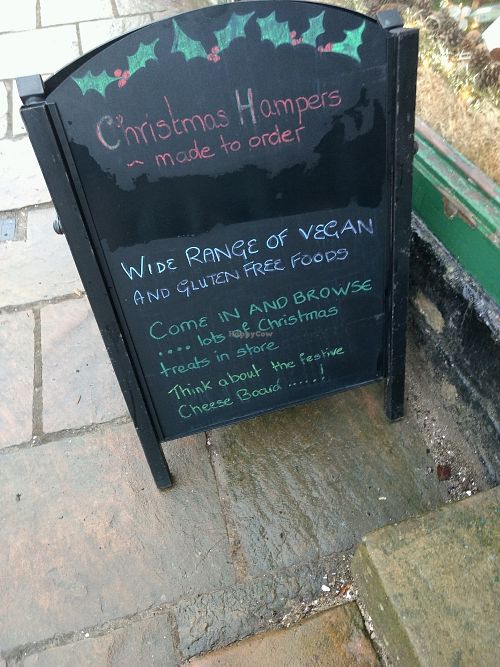 Christmas Hampers
~ made to order
WIDE RANGE OF VEGAN
AND GLUTEN FREE FOODS
COME IN AND BROWSE
.... lots of Christmas
treats in store
Think about the festive
Cheese Board .....!
HappyCow